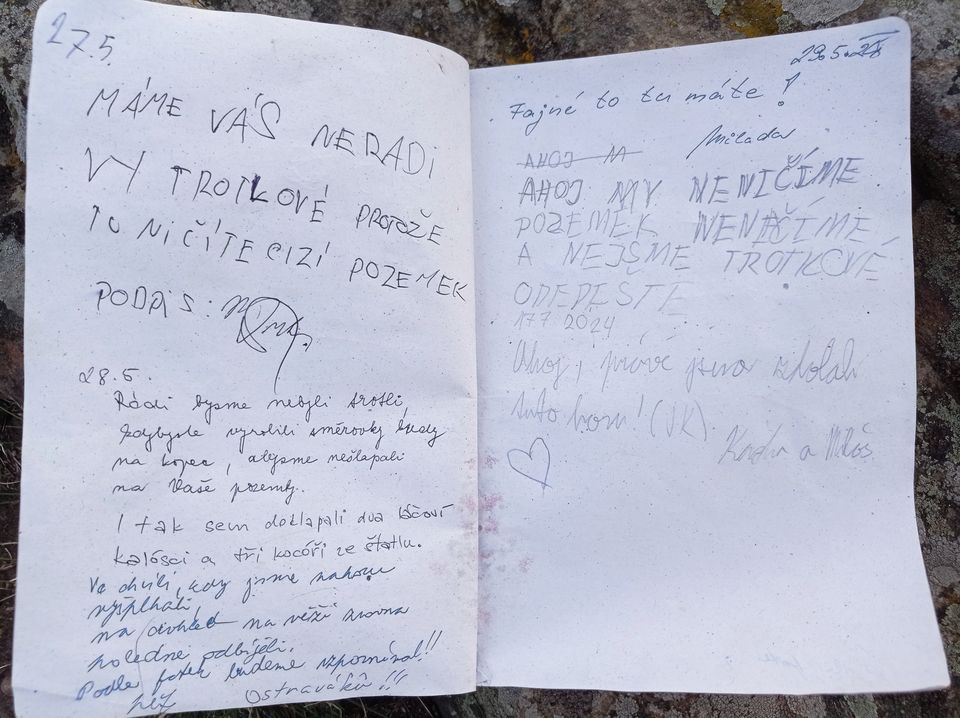 27.5.
MÁME VÁS NERADI
VY TROTLOVÉ PROTOŽE
TO NIČÍTE CIZÍ POZEMEK
PODPIS:
28.5.
Rádi bysme nebyli trotli,
kdybyste vyrobili směrovky kudy
na kopec, abysme nešlapali
na Vaše pozemky.
I tak sem došlapali dva
a tři kocóři ze štatlu.
Ve chvíli, kdy jsme nahoru
vyšplhali,
na věži zrovna
poledne odbíjeli.
Podle fotek budeme vzpomínat!!
Ostraváků!!!
29.5.
Fajné to tu máte!
Milada
AHOJ M
AHOJ MY NENIČÍME
POZEMEK NENIČÍME
A NEJSME TROTLOVÉ
ODEPEŠTE
17 7 2024
Ahoj, právě jsme zdolali
tuto horu! (JK)
a Miloš